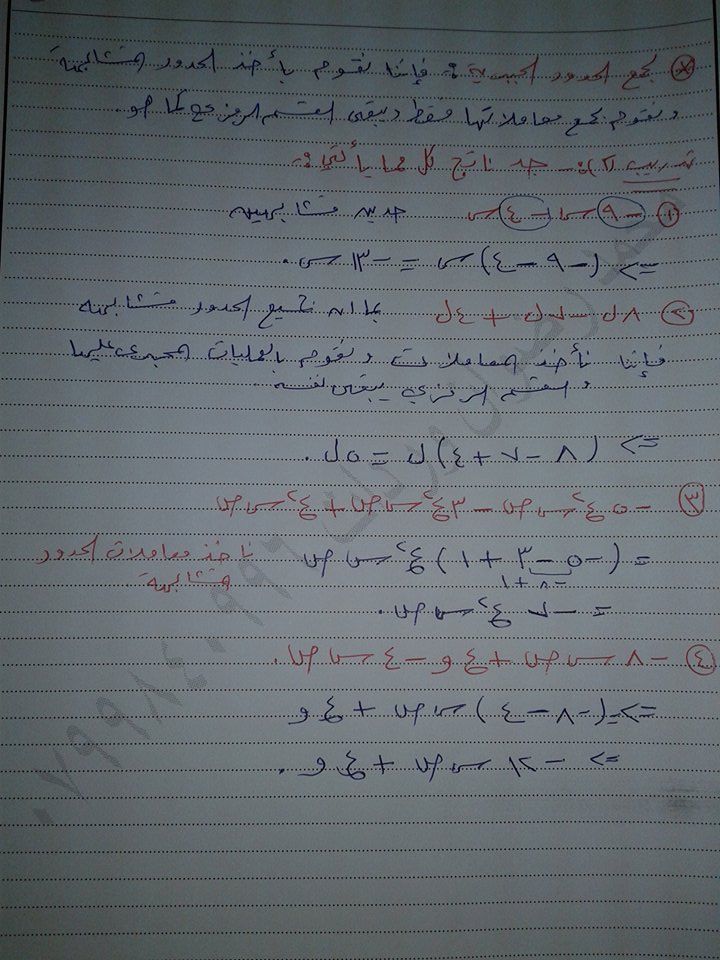 * بجمع الحدود الجبرية :- فإننا نقوم بأخذ الحدود المتشابهة
ونقوم بجمع معاملاتها فقط ويبقى القسم الرمزي كما هو.
تدريب (٢) :- جد ناتج كل مما يأتي :-
(١) -٩س - ٤س حدين متشابهين
<= (-٩-٤)س = -١٣س.
(٢) ٨ل - ٧ل + ٤ل بما ان جميع الحدود متشابهة
فإننا نأخذ المعاملات ونقوم بالعمليات الجبرية عليها
والقسم الرمزي يبقى نفسه
<= (٨-٧+٤)ل = ٥ل.
(٣) -٥ع٢س ص - ٣ع٢س ص + ع٢س ص
= (-٥-٣+١)ع٢س ص نأخذ معاملات الحدود
-٨+١ متشابهة
= -٧ع٢س ص.
(٤) -٨س ص + ع و - ٤س ص.
<= (-٨-٤)س ص + ع و
<= -١٢س ص + ع و.